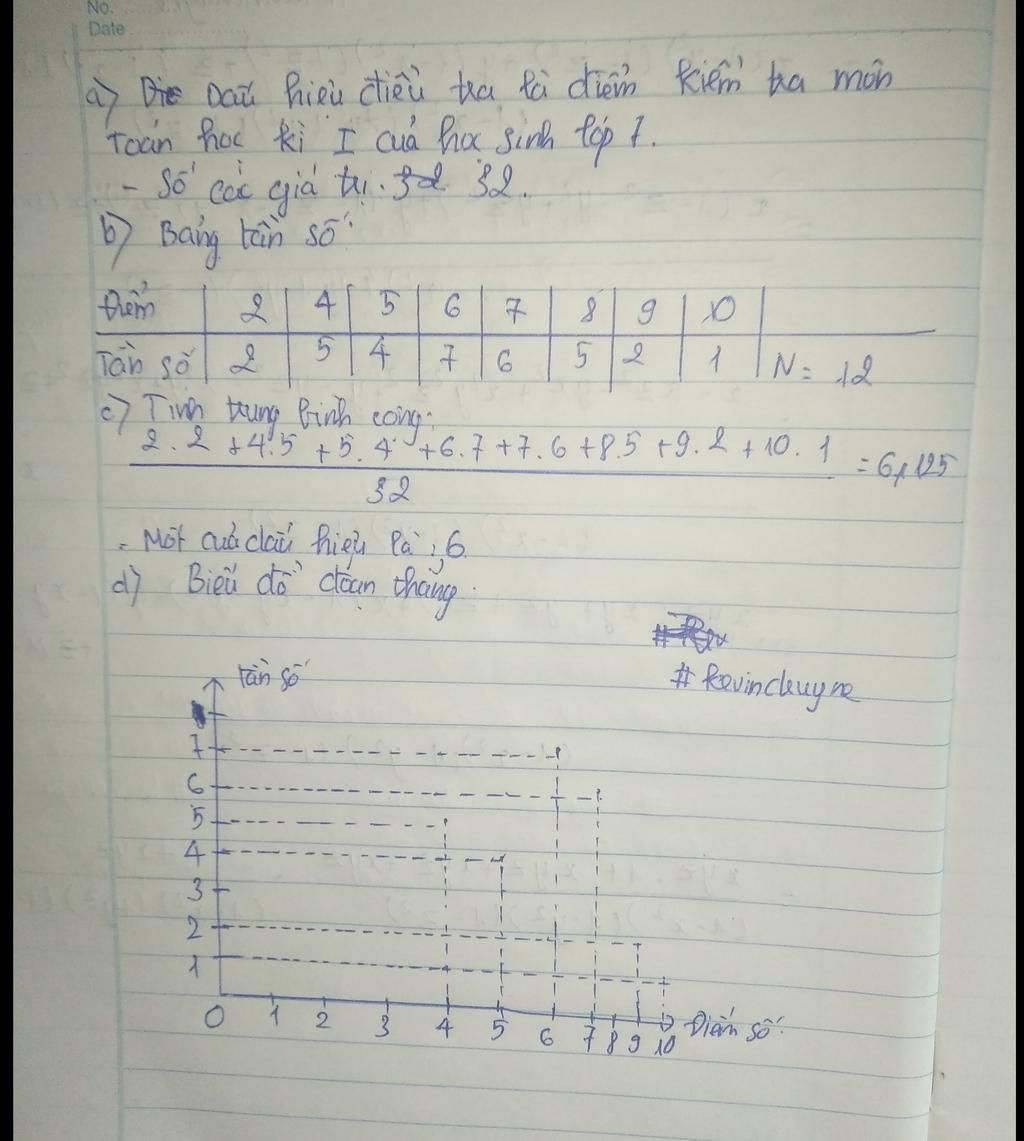 No.
Date
a) Dấu hiệu điều tra là điểm kiểm tra môn
Toán học kì I của học sinh lớp 7.
- Số các giá trị. 32.
b) Bảng tần số:
Điểm 2 4 5 6 7 8 9 10
Tần số 2 5 4 7 6 5 2 1 N = 12
c) Tính trung bình cộng:
2.2 + 4.5 + 5.4 + 6.7 + 7.6 + 8.5 + 9.2 + 10.1
= 6,125
32
- Mốt của dấu hiệu là: 6
d) Biểu đồ đoạn thẳng.
# kevinchuyne
Tần số
7
6
5
4
3
2
1
0 1 2 3 4 5 6 7 8 9 10 Điểm số